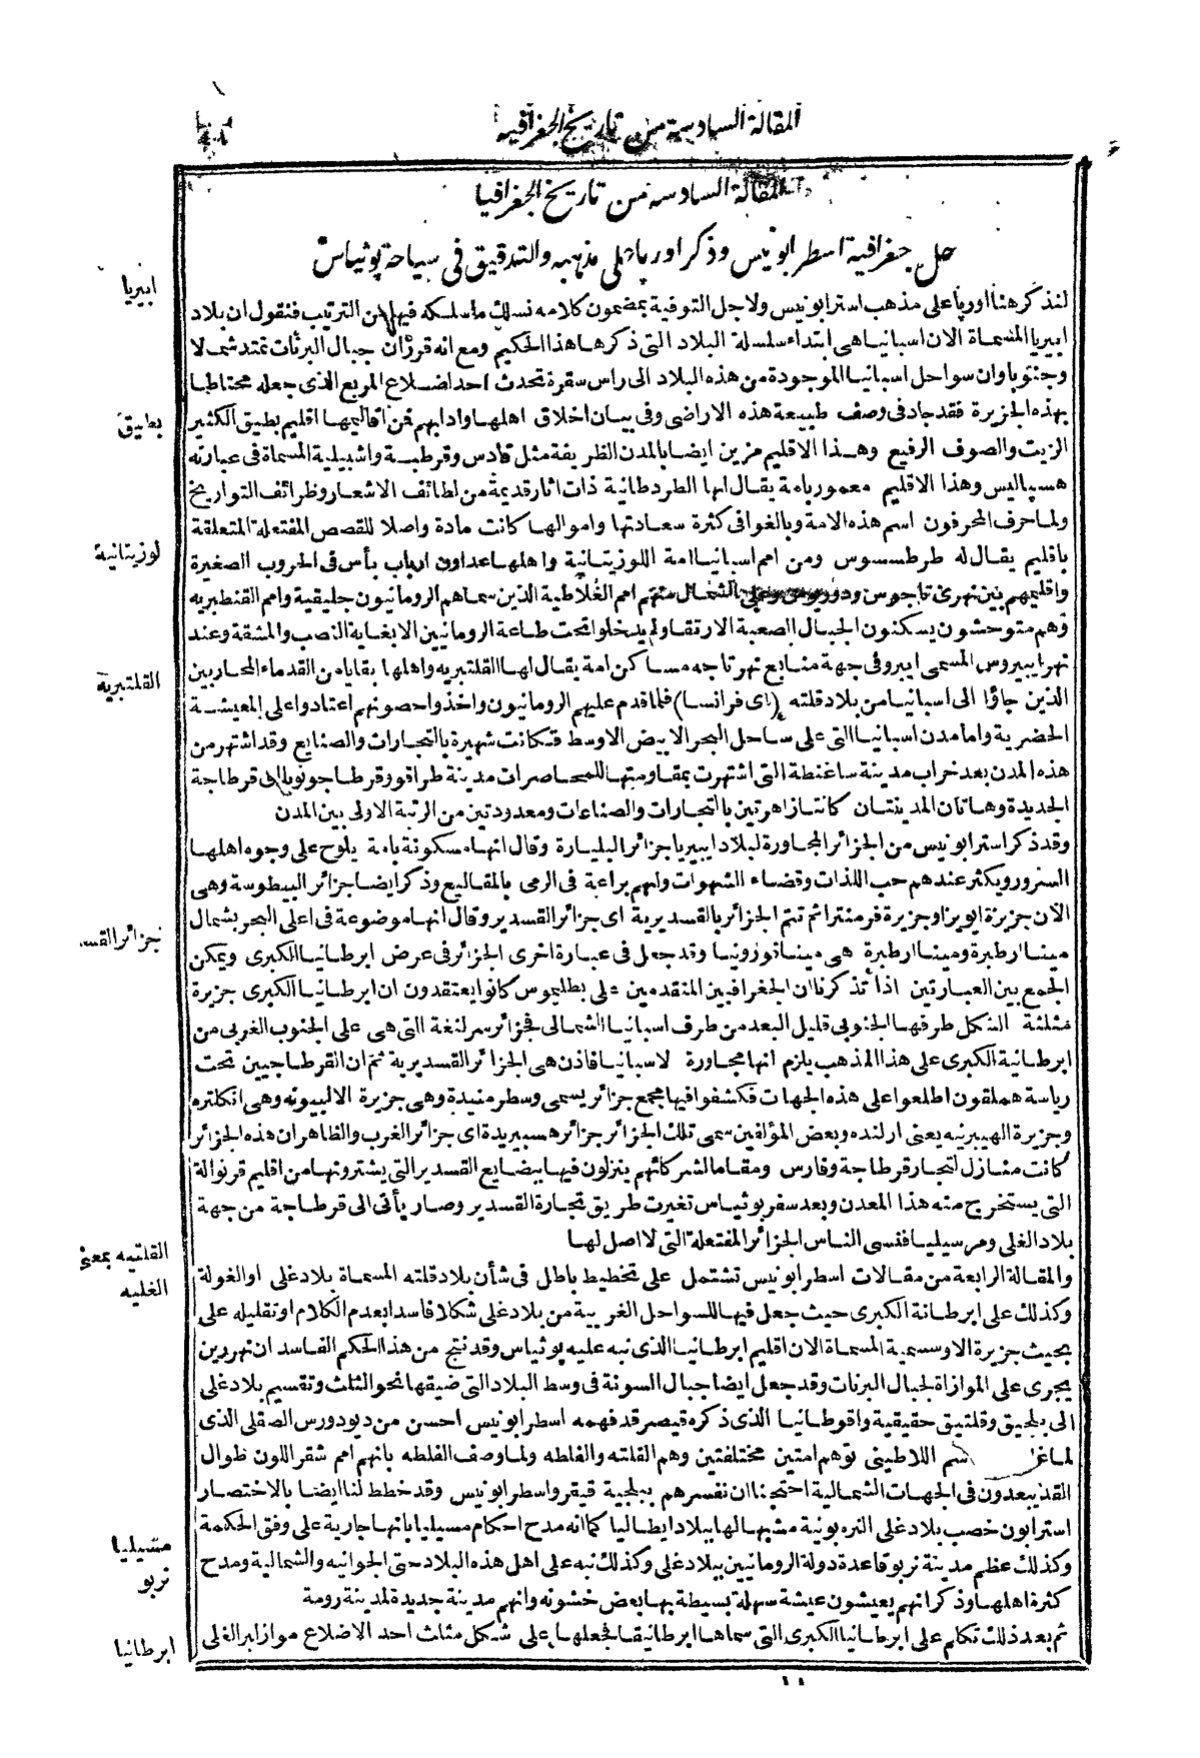 المقالة السادسة من تاريخ الجغرافيه
المقالة السادسه من تاريخ الجغرافيا
حل جغرافية اسطرابونيس وذكر اوربا على مذهبه والتدقيق فى سياحة پوثياس
ابيريا
لنذكر هنا اوربا على مذهب استرابونيس ولاجل التوفية بمضمون كلامه نسلك ماسلكه فيها من الترتيب فنقول ان بلاد
ابيريا المسماة الان اسبانيا هى ابتداء سلسلة البلاد التى ذكرها هذا الحكيم ومع انه قرر ان جبال البرنات تمتد شمالا
وجنوبا وان سواحل اسبانيا الموجودة من هذه البلاد الى راس سقرة تحدث احد اضلاع المربع الذى جعله محتاطبا
بطيق
بهذه الجزيرة فقد جاد فى وصف طبيعة هذه الاراضى وفى بيان اخلاق اهلها وادابهم فمن اقاليمها اقليم بطيق الكثير
الزيت والصوف الرفيع وهذا الاقليم مزين ايضا بالمدن الظريفة مثل قادس وقرطبة واشبيلية المسماة فى عبارته
هسپاليس وهذا الاقليم معمور بامة يقال لها الطردطانية ذات اثار قديمة من لطائف الاشعار وظرائف التواريخ
ولما حرف المحرفون اسم هذه الامة وبالغوا فى كثرة سعادتها واموالها كانت مادة واصلا للقصص المفتعلة المتعلقة
لوزيتانية
باقليم يقال له طرطسوس ومن امم اسبانيا امة اللوزيتانية واهلها عداون ارباب بأس فى الحروب الصغيرة
واقليمهم بين نهرى تاجوس ودوريوس وعلى الشمال منهم امم الغلاطية الذين سماهم الرومانيون جليقية وامم القنطبريه
وهم متوحشون يسكنون الجبال الصعبة الارتقا ولم يدخلوا تحت طاعة الرومانيين الا بغاية النصب والمشقة وعند
القلتبرية
نهر ايبيروس المسمى ايبرو فى جهة منابع نهر تاجه مساكن امة يقال لها القلتبريه واهلها بقايا من القدماء المحاربين
الذين جاؤا الى اسبانيا من بلاد قلته (اى فرانسا) فلما قدم عليهم الرومانيون واخذوا حصونهم اعتادوا على المعيشة
الحضرية واما مدن اسبانيا التى على ساحل البحر الابيض الاوسط فكانت شهيرة بالتجارات والصنايع وقد اشتهر من
هذه المدن بعد خراب مدينة ساغنطة التى اشتهرت بمقاومتها للمحاصرات مدينة طراقو وقرطاجونوبا اى قرطاجة
الجديدة وهاتان المدينتان كانتا زاهرتين بالتجارات والصناعات ومعدودتين من الرتبة الاولى بين المدن
وقد ذكر استرابونيس من الجزائر المجاورة لبلاد ايبيريا جزائر البليارة وقال انها مسكونة بامة يلوح على وجوه اهلها
السرور ويكثر عندهم حب اللذات وقضاء الشهوات ولهم براعة فى الرمى بالمقاليع وذكر ايضا جزائر البيطوسة وهى
جزائر القسد
الان جزيرة ايويزا وجزيرة فرمنترا ثم تتم الجزائر بالقسديرية اى جزائر القسدير وقال انها موضوعة فى اعلى البحر بشمال
مينا ارطبرة ومينا ارطبرة هى مينا قورونيا وقد جعل فى عبارة اخرى الجزائر فى عرض ابرطانيا الكبرى ويمكن
الجمع بين العبارتين اذا تذكرنا ان الجغرافيين المتقدمين على بطليموس كانوا يعتقدون ان ابرطانيا الكبرى جزيرة
مثلثة الشكل طرفها الجنوبى قليل البعد من طرف اسبانيا الشمالى فجزائر سرلنغة التى هى على الجنوب الغربى من
ابرطانية الكبرى على هذا المذهب يلزم انها مجاورة لاسبانيا فاذن هى الجزائر القسديرية ثم ان القرطاجيين تحت
رياسة هملقون اطلعوا على هذه الجهات فكشفوا فيها مجمع جزائر يسمى وسطرمنيدة وهى جزيرة الالبيونه وهى انكلتره
وجزيرة الهيبرنيه يعنى ارلنده وبعض المؤلفين سمى تلك الجزائر جزائر هسبيريدة اى جزائر الغرب والظاهر ان هذه الجزائر
كانت منازل لتجار قرطاجة وقارس ومقاما لشركائهم ينزلون فيها ببضايع القسدير التى يشترونها من اقليم قرنوالة
التى يستخرج منه هذا المعدن وبعد سفر پوثياس تغيرت طريق تجارة القسدير وصار يأتى الى قرطاجة من جهة
القلتيه بمعنى
بلاد الغلى ومرسيليا فنسى الناس الجزائر المفتعلة التى لا اصل لها
الغليه
والمقالة الرابعة من مقالات اسطرابونيس تشتمل على تخطيط باطل فى شأن بلاد قلته المسماة بلاد غلى او الغولة
وكذلك على ابرطانة الكبرى حيث جعل فيها للسواحل الغربية من بلاد غلى شكلا فاسدا بعدم الكلام او تقليله على
بحيث جزيرة الاوسسمية المسماة الان اقليم ابرطانيا الذى نبه عليه پوثياس وقد نتج من هذا الحكم الفاسد ان نهردين
يجرى على الموازاة لجبال البرنات وقد جعل ايضا جبال السونة فى وسط البلاد التى ضيقها نحو الثلث وتقسيم بلاد غلى
الى بلجيق وقلتيق حقيقية واقوطانيا الذى ذكره قيصر قد فهمه اسطرابونيس احسن من ديودورس الصقلى الذى
لما غلا سم اللاطينى توهم امتين مختلفتين وهم القلته والغلطه ولما وصف الغلطه بانهم امم شقر اللون طوال
القد يبعدون فى الجهات الشمالية احتجنا ان نفسرهم ببلجية قيقر واسطرابونيس وقد خطط لنا ايضا بالاختصار
مسيليا
استرابون خصب بلاد غلى النربونية مشبها لها ببلاد ايطاليا كما انه مدح احكام مسيليا بانها جارية على وفق الحكمة
نربو
وكذلك عظم مدينة نربو قاعدة دولة الرومانيين ببلاد غلى وكذلك نبه على اهل هذه البلاد حتى الجوانيه والشمالية ومدح
كثرة اهلها وذكر انهم يعيشون عيشة سهلة بسيطة بها بعض خشونه وانهم مدينة جديدة لمدينة رومة
ابرطانيا
ثم بعد ذلك تكلم على ابرطانيا الكبرى التى سماها ابرطانيقا فجعلها على شكل مثلث احد الاضلاع موازا بر الغلى
١١